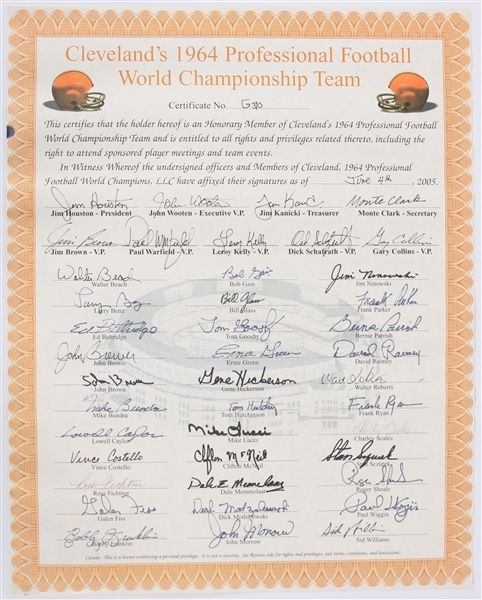 Cleveland's 1964 Professional Football
World Championship Team
Certificate No.
This certifies that the holder hereof is an Honorary Member of Cleveland's 1964 Professional Football
World Championship Team and is entitled to all rights and privileges related thereto, including the
right to attend sponsored player meetings and team events.
In Witness Whereof the undersigned officers and Members of Cleveland, 1964 Professional
Football World Champions, LLC have affixed their signatures as of June 4th, 2005.
Jim Houston John Wooten Jim Kanicki Monte Clark
Jim Houston - President John Wooten - Executive V.P. Jim Kanicki - Treasurer Monte Clark - Secretary
Jim Brown Paul Warfield Leroy Kelly Dick Schafrath Gary Collins
Jim Brown - V.P. Paul Warfield - V.P. Leroy Kelly - V.P. Dick Schafrath - V.P. Gary Collins - V.P.
Walter Beach Bob Gain Jim Ninowski
Walter Beach Bob Gain Jim Ninowski
Larry Benz Bill Glass Frank Parker
Larry Benz Bill Glass Frank Parker
Ed Bettridge Tom Goosby Bernie Parrish
Ed Bettridge Tom Goosby Bernie Parrish
John Brewer Ernie Green David Raimey
John Brewer Ernie Green David Raimey
John Brown Gene Hickerson Walter Roberts
John Brown Gene Hickerson Walter Roberts
Mike Bundra Tom Hutchinson Frank Ryan
Mike Bundra Tom Hutchinson Frank Ryan
Lowell Caylor Mike Lucci Charley Scales
Lowell Caylor Mike Lucci Charley Scales
Vince Costello Clifton McNeil Stan Sczurek
Vince Costello Clifton McNeil Stan Sczurek
Ross Fichtner Dale E Memmelaar Roger Shoals
Ross Fichtner Dale Memmelaar Roger Shoals
Galen Fiss Dick Modzelewski Paul Wiggin
Galen Fiss Dick Modzelewski Paul Wiggin
Bobby Franklin John Morrow Sid Williams
Bobby Franklin John Morrow Sid Williams
Caveat: This is a license evidencing a personal privilege. It is not a security. See Reverse side for rights and privileges, and terms, conditions, and limitations.